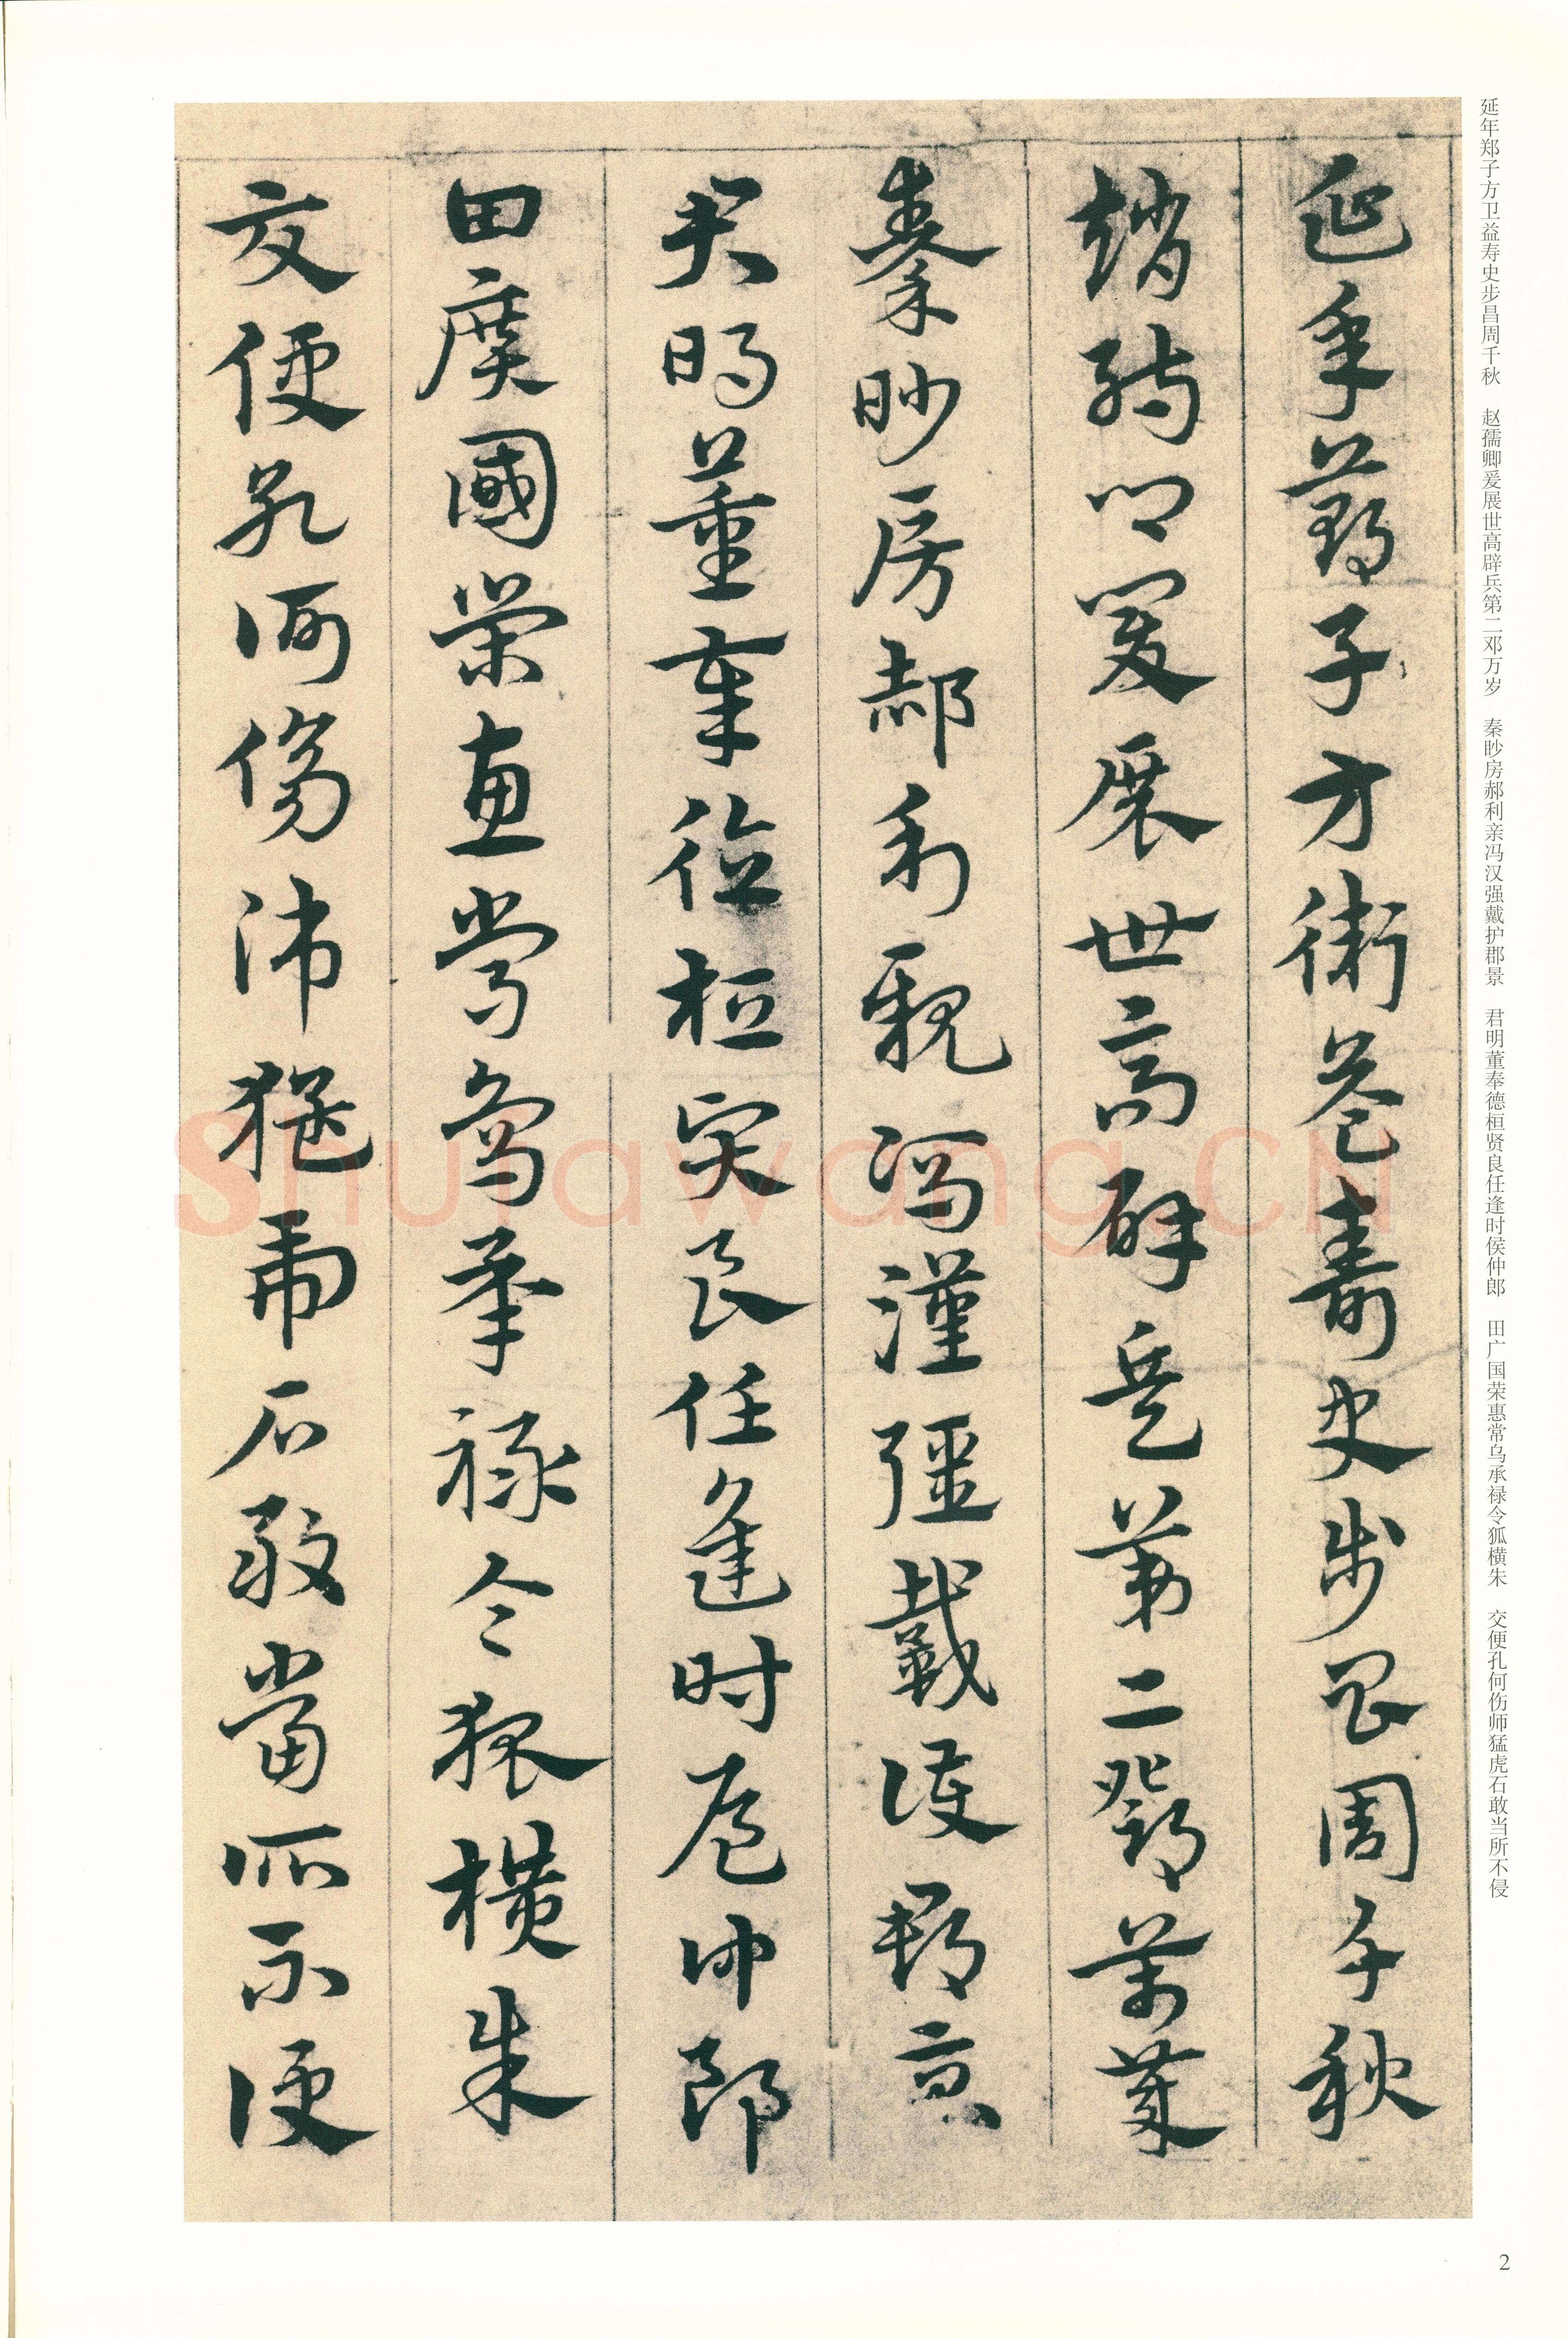 延年鄧子方衛益壽史步昌周千秋
趙孺卿爰展世高辟兵第二鄧萬歲
秦眇房郝利親馮漢彊戴護郡景
君明董奉德桓賢良任逢時侯仲郎
田廣國榮惠常烏承祿令狐橫朱
交便孔何傷師猛虎石敢當所不侵
延年郑子方卫益寿史步昌周千秋 赵孺卿爰展世高辟兵第二邓万岁 秦眇房郝利亲冯汉强戴护郡景 君明董奉德桓贤良任逢时侯仲郎 田广国荣惠常乌承禄令狐横朱 交便孔何伤师猛虎石敢当所不侵
Shufawang.CN
2